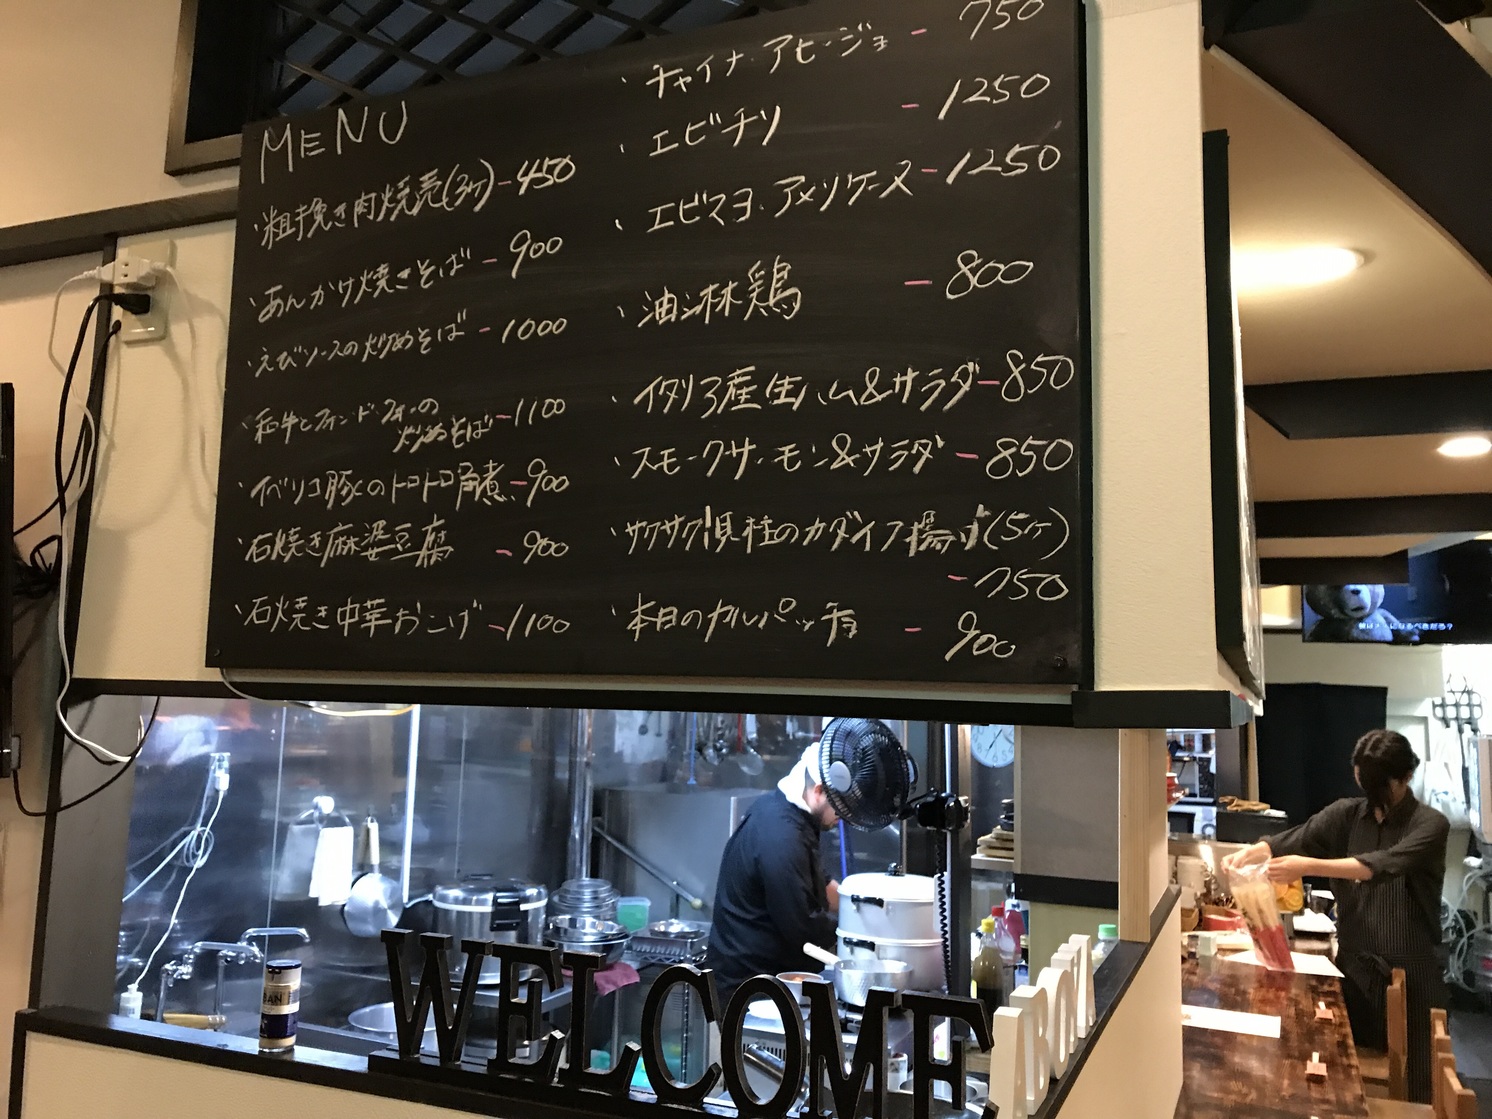 MENU
・粗挽き肉焼売(3ヶ)-450
・あんかけ焼きそば-900
・えびソースの炒めそば-1000
・和牛とフォンドヴォーの
炒めそば-1100
・イベリコ豚のトロトロ角煮-900
・石焼き麻婆豆腐-900
・石焼き中華おこげ-1100
・チャイナ・アヒージョ-750
・エビチリ-1250
・エビマヨ・アメリケーヌ-1250
・油淋鶏-800
・イタリア産生ハム&サラダ-850
・スモークサーモン&サラダ-850
・サクサク貝柱のカダイフ揚げ(5ヶ)
-750
・本日のカルパッチョ-900
WELCOME